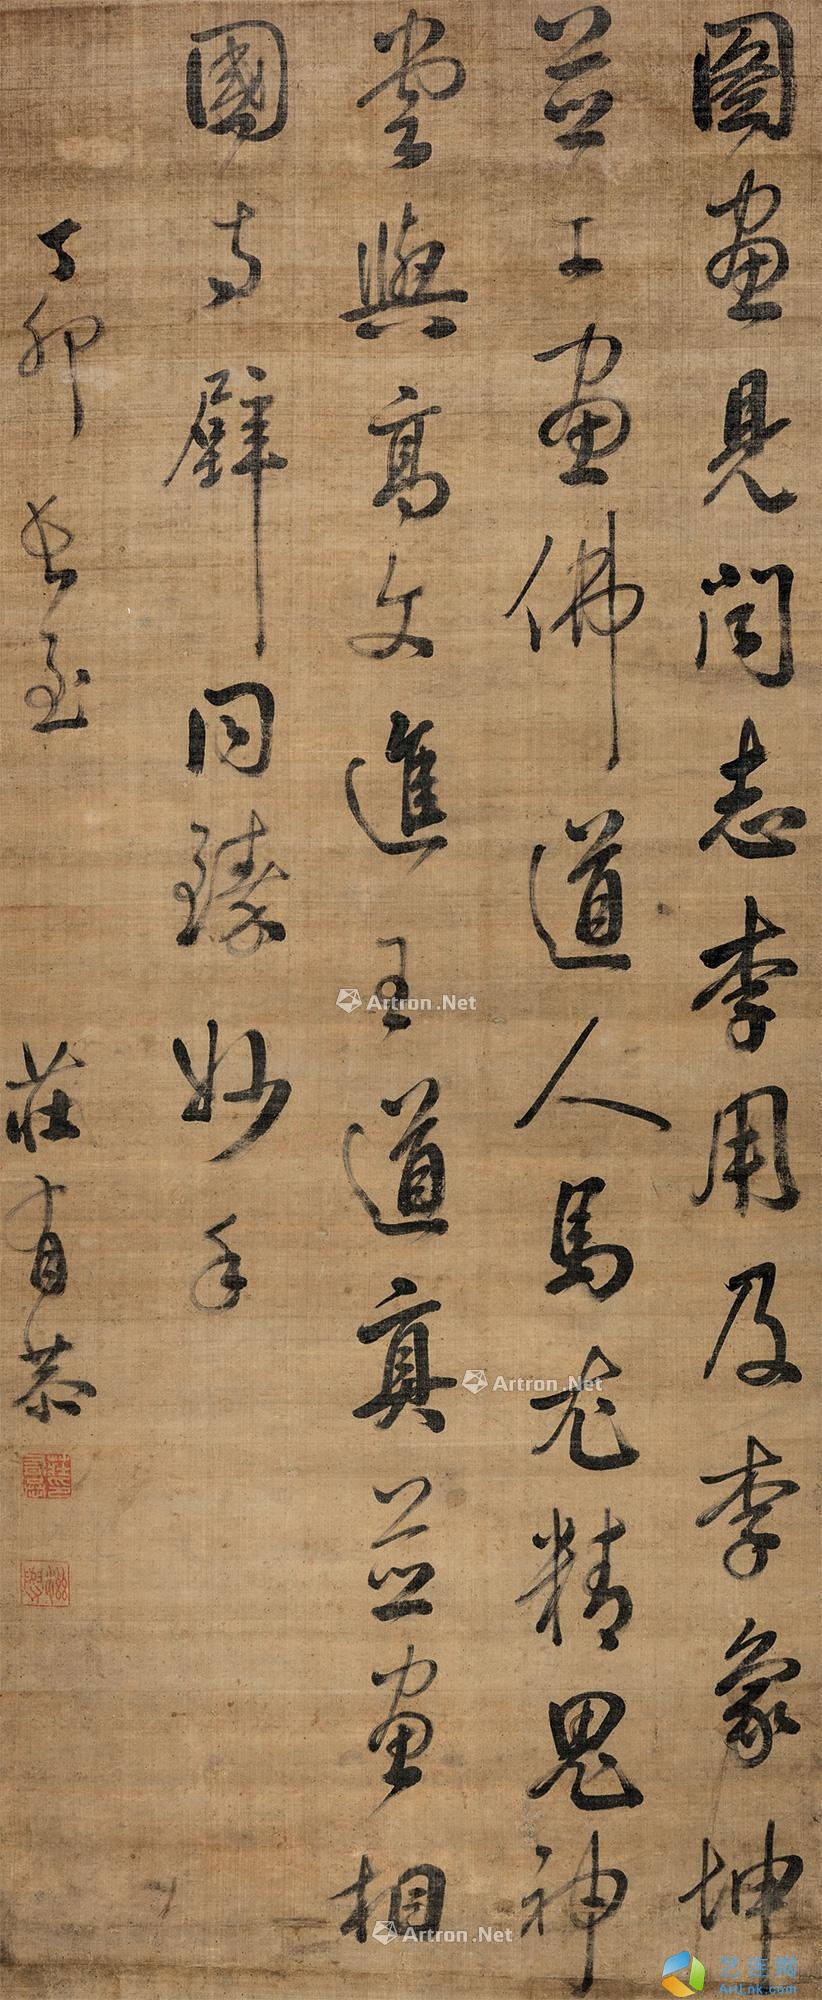 圖畫見聞志李用及李象坤
並工畫佛道人馬尤精鬼神
嘗與高文進王道真並畫相
國寺壁同臻妙手
丁卯長至
莊有恭
Artron.Net
Artron.Net
Artron.Net
ArtLnk.com